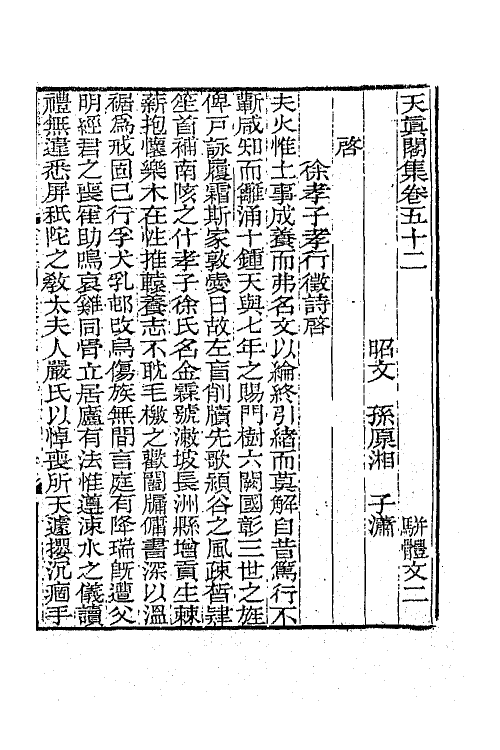 天眞閣集卷五十二　駢體文二
昭文　孫原湘　子瀟
啓
徐孝子孝行徵詩啓
夫火惟土事成養而弗名文以綸終引緒而莫解自昔篤行不
蘄咸知而雛涌十鍾天與七年之賜門樹六闕國彰三世之旌
俾戸詠履霜斯家敦愛日故左盲削牘先歌潁谷之風疎晳肄
笙首補南陔之什孝子徐氏名金霖號漱坡長洲縣增貢生棘
薪抱懷樂木在性推轅養志不耽毛檄之歡闔牖傭書深以溫
裾為戒固已行孚犬乳邨改烏傷族無間言庭有降瑞旣遭父
明經君之喪崔助鳴哀雞同骨立居廬有法惟遵涑水之儀讀
禮無違悉屏祇陀之敎太夫人嚴氏以悼喪所天遽攖沉痼手